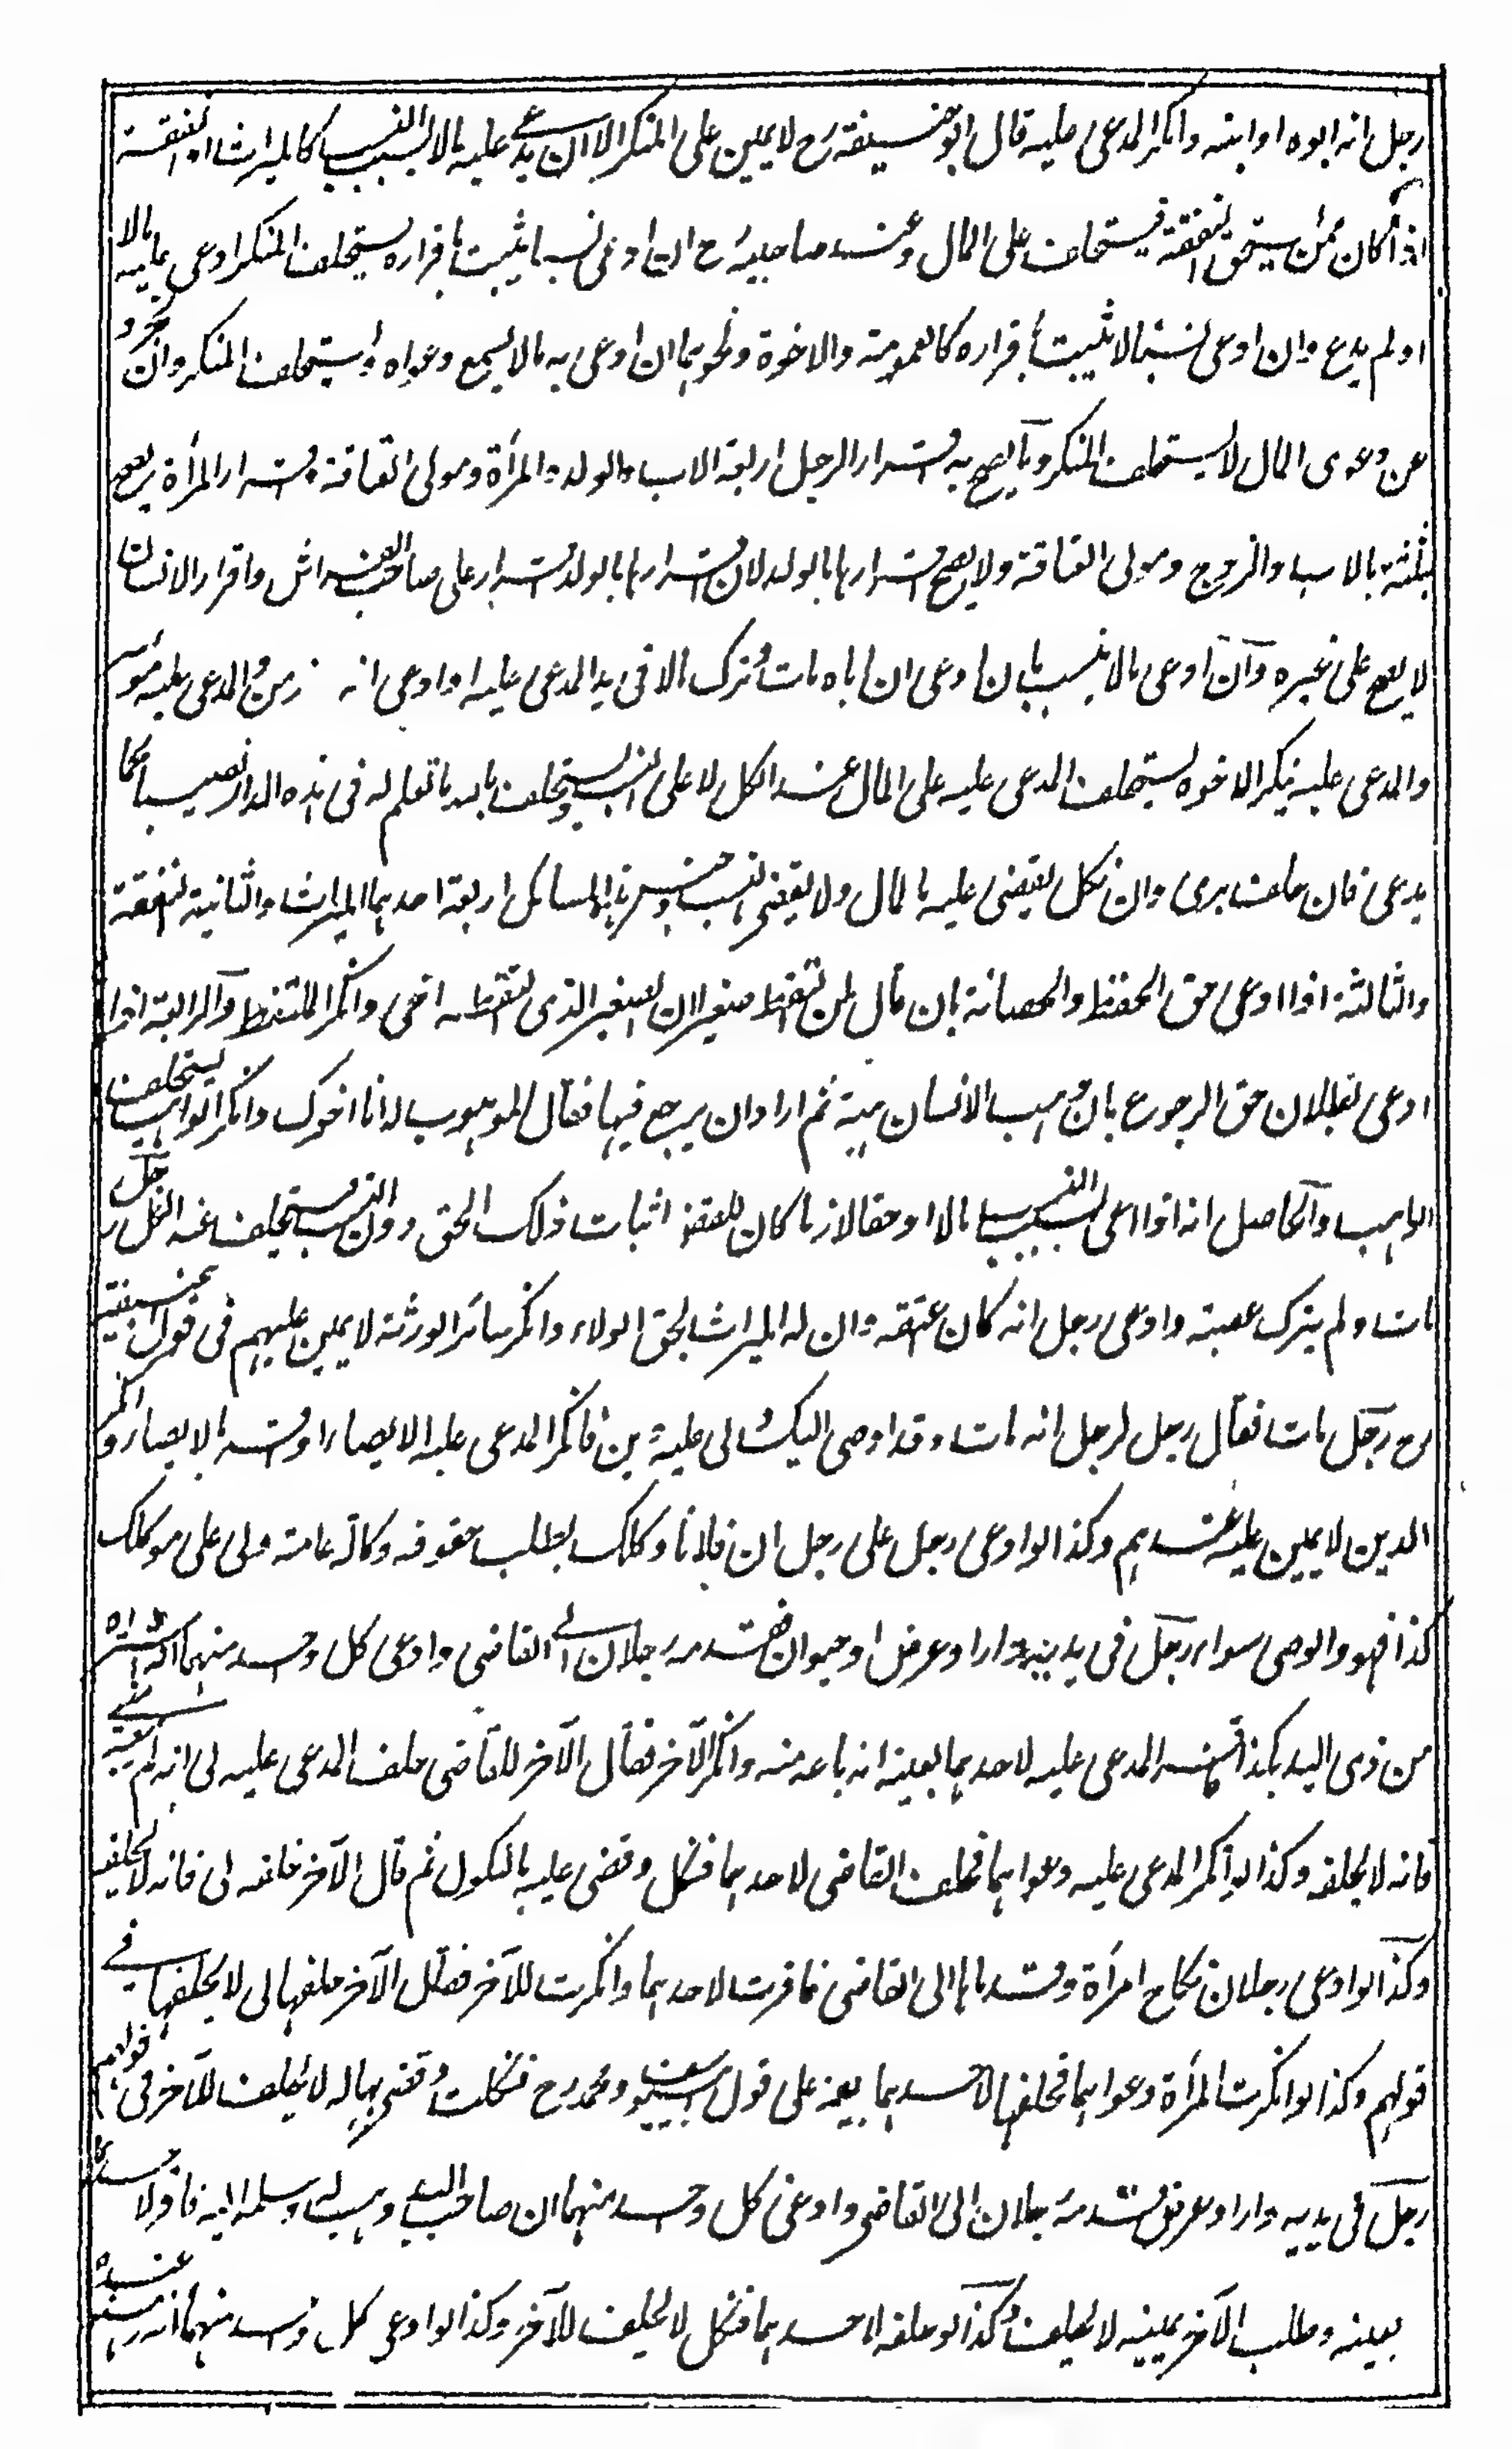 رجل انه ابوه او ابنه وانكر المدعى عليه قال ابو حنيفة رح لا يمين على المنكر الا ان يدعى عليه مالا بسبب النسب كالميراث او النفقة
اذا كان ممن يستحق النفقة فيستحلف على المال وعند صاحبيه رح ان ادعى نسبا يثبت باقراره يستحلف المنكر ادعى عليه مالا
او لم يدع وان ادعى نسبا لا يثبت باقراره كالعمومة والاخوة ونحوهما ان ادعى به مالا يسمع دعواه ويستحلف المنكر وان جرد
عن دعوى المال لا يستحلف المنكر وما يصح به اقرار الرجل اربعة الاب والولد والمرأة ومولى العتاقة واقرار المرأة يصح
بثلثة بالاب والزوج ومولى العتاقة ولا يصح اقرارها بالولد لان اقرارها بالولد اقرار على صاحب الفراش واقرار الانسان
لا يصح على غيره وان ادعى مالا بنسب بان ادعى ان اباه مات وترك مالا فى يد المدعى عليه او ادعى انه زمن والمدعى عليه موسر
والمدعى عليه ينكر الاخوة يستحلف المدعى عليه على المال عند الكل لا على النسب ويحلف بالله ما تعلم له فى هذه الدار نصيبا كما
يدعى فان حلف برى وان نكل يقضى عليه بالمال ولا يقضى بالنسب وجنس هذه المسائل اربعة احدهما الميراث والثانية النفقة
والثالثة اذا ادعى حق الحفظ والحضانة بان قال لمن التقط صغيرا ان الصغير الذى التقطه اخى وانكر الملتقط والرابعة اذا
ادعى بطلان حق الرجوع بان وهب لانسان هبة ثم اراد ان يرجع فيها فقال الموهوب له انا اخوك وانكر الواهب يستحلف
الواهب والحاصل انه اذا ادعى بسبب النسب مالا او حقا لازما كان المقصود اثبات ذلك الحق دون النسب يستحلف عند الكل رجل
مات ولم يترك عصبة وادعى رجل انه كان عتقه وان له الميراث بحق الولاء وانكر سائر الورثة لا يمين عليهم فى قول ابى حنيفة
رح رجل مات فقال رجل لرجل انه مات وقد اوصى اليك ولى عليه دين فانكر المدعى عليه الايصاء او اقر بالايصاء وانكر
الدين لا يمين عليه عندهم وكذا لو ادعى رجل على رجل ان فلانا وكلك بطلب حقوقه وكالة عامة ولى على موكلك
كذا فهو والوصى سواء رجل فى يديه دار او عرض او حيوان فقدمه رجلان الى القاضى وادعى كل واحد منهما انه اشتراه
من ذى اليد بكذا فاقر المدعى عليه لاحدهما بعينه انه باعه منه وانكر الآخر فقال الآخر للقاضى حلف المدعى عليه لى انه لم يبعه
فانه لا يحلفه وكذا لو انكر المدعى عليه دعواهما فحلف القاضى لاحدهما فنكل وقضى عليه بالنكول ثم قال الآخر حلفه لى فانه لا يحلفه
وكذا لو ادعى رجلان نكاح امرأة وقدماها الى القاضى فاقرت لاحدهما وانكرت للآخر فقال الآخر حلفها لى لا يحلفها فى
قولهم وكذا لو انكرت المرأة دعواهما فحلفها لاحدهما بعينه على قول ابى يوسف ومحمد رح فنكلت وقضى بها له لا يحلف للآخر فى قولهم
رجل فى يديه دار او عرض قدمه رجلان الى القاضى وادعى كل واحد منهما ان صاحب اليد وهب له وسلمه اليه فاقر لاحدهما
بعينه وطلب الآخر يمينه لا يحلف وكذا لو حلفه لاحدهما فنكل لا يحلف للآخر وكذا لو ادعى كل واحد منهما انه رهنه عنده